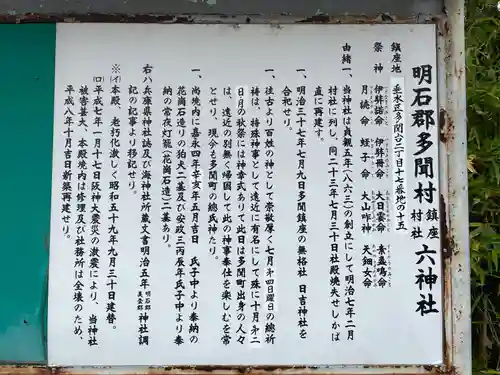 明石郡多聞村 鎮座 村社 六神社
鎮座地 垂水区多聞台二丁目十七番地の十五
祭神 伊弉諾命 伊弉冊命 大日霊命 素盞鳴命
月読命 蛭子命 大山咋神 天鈿女命
由緒一、当神社は貞観五年(八六三)の創立にして明治七年二月
村社に列し、同二十三年七月三十日社殿焼失せしかば
直に再建す。
一、明治三十七年七月九日多聞鎮座の無格社 日吉神社を
合祀せり。
一、往古より百姓の神として崇敬厚く七月第四日曜日の総祈
祷は、特殊神事として遠近に有名にして殊に十月第二
日月の秋祭には神幸式ありて此日は多聞町出身の人々
は、遠近の別無く帰国して此の神事奉仕を楽しむを常
とせり、現今も多聞町の総氏神たり。
一、尚境内に嘉永四年辛亥年五月吉日 氏子中より奉納の
花崗石造りの狛犬二基及び安政三丙辰年氏子中より奉
納の常夜灯籠(花崗石造)二基あり。
右ハ兵庫県神社誌及び海神社所蔵文書明治五年 明石郡 美嚢郡 神社調
記の記事より移記せり。
※(イ)本殿、老朽化激しく昭和五十九年九月三十日建替。
(ロ)平成七年一月十七日阪神大震災の激震により、当神社
被害甚大、本殿境内は修理及び社務所は全壊のため、
平成八年十月吉日新築再建せり。